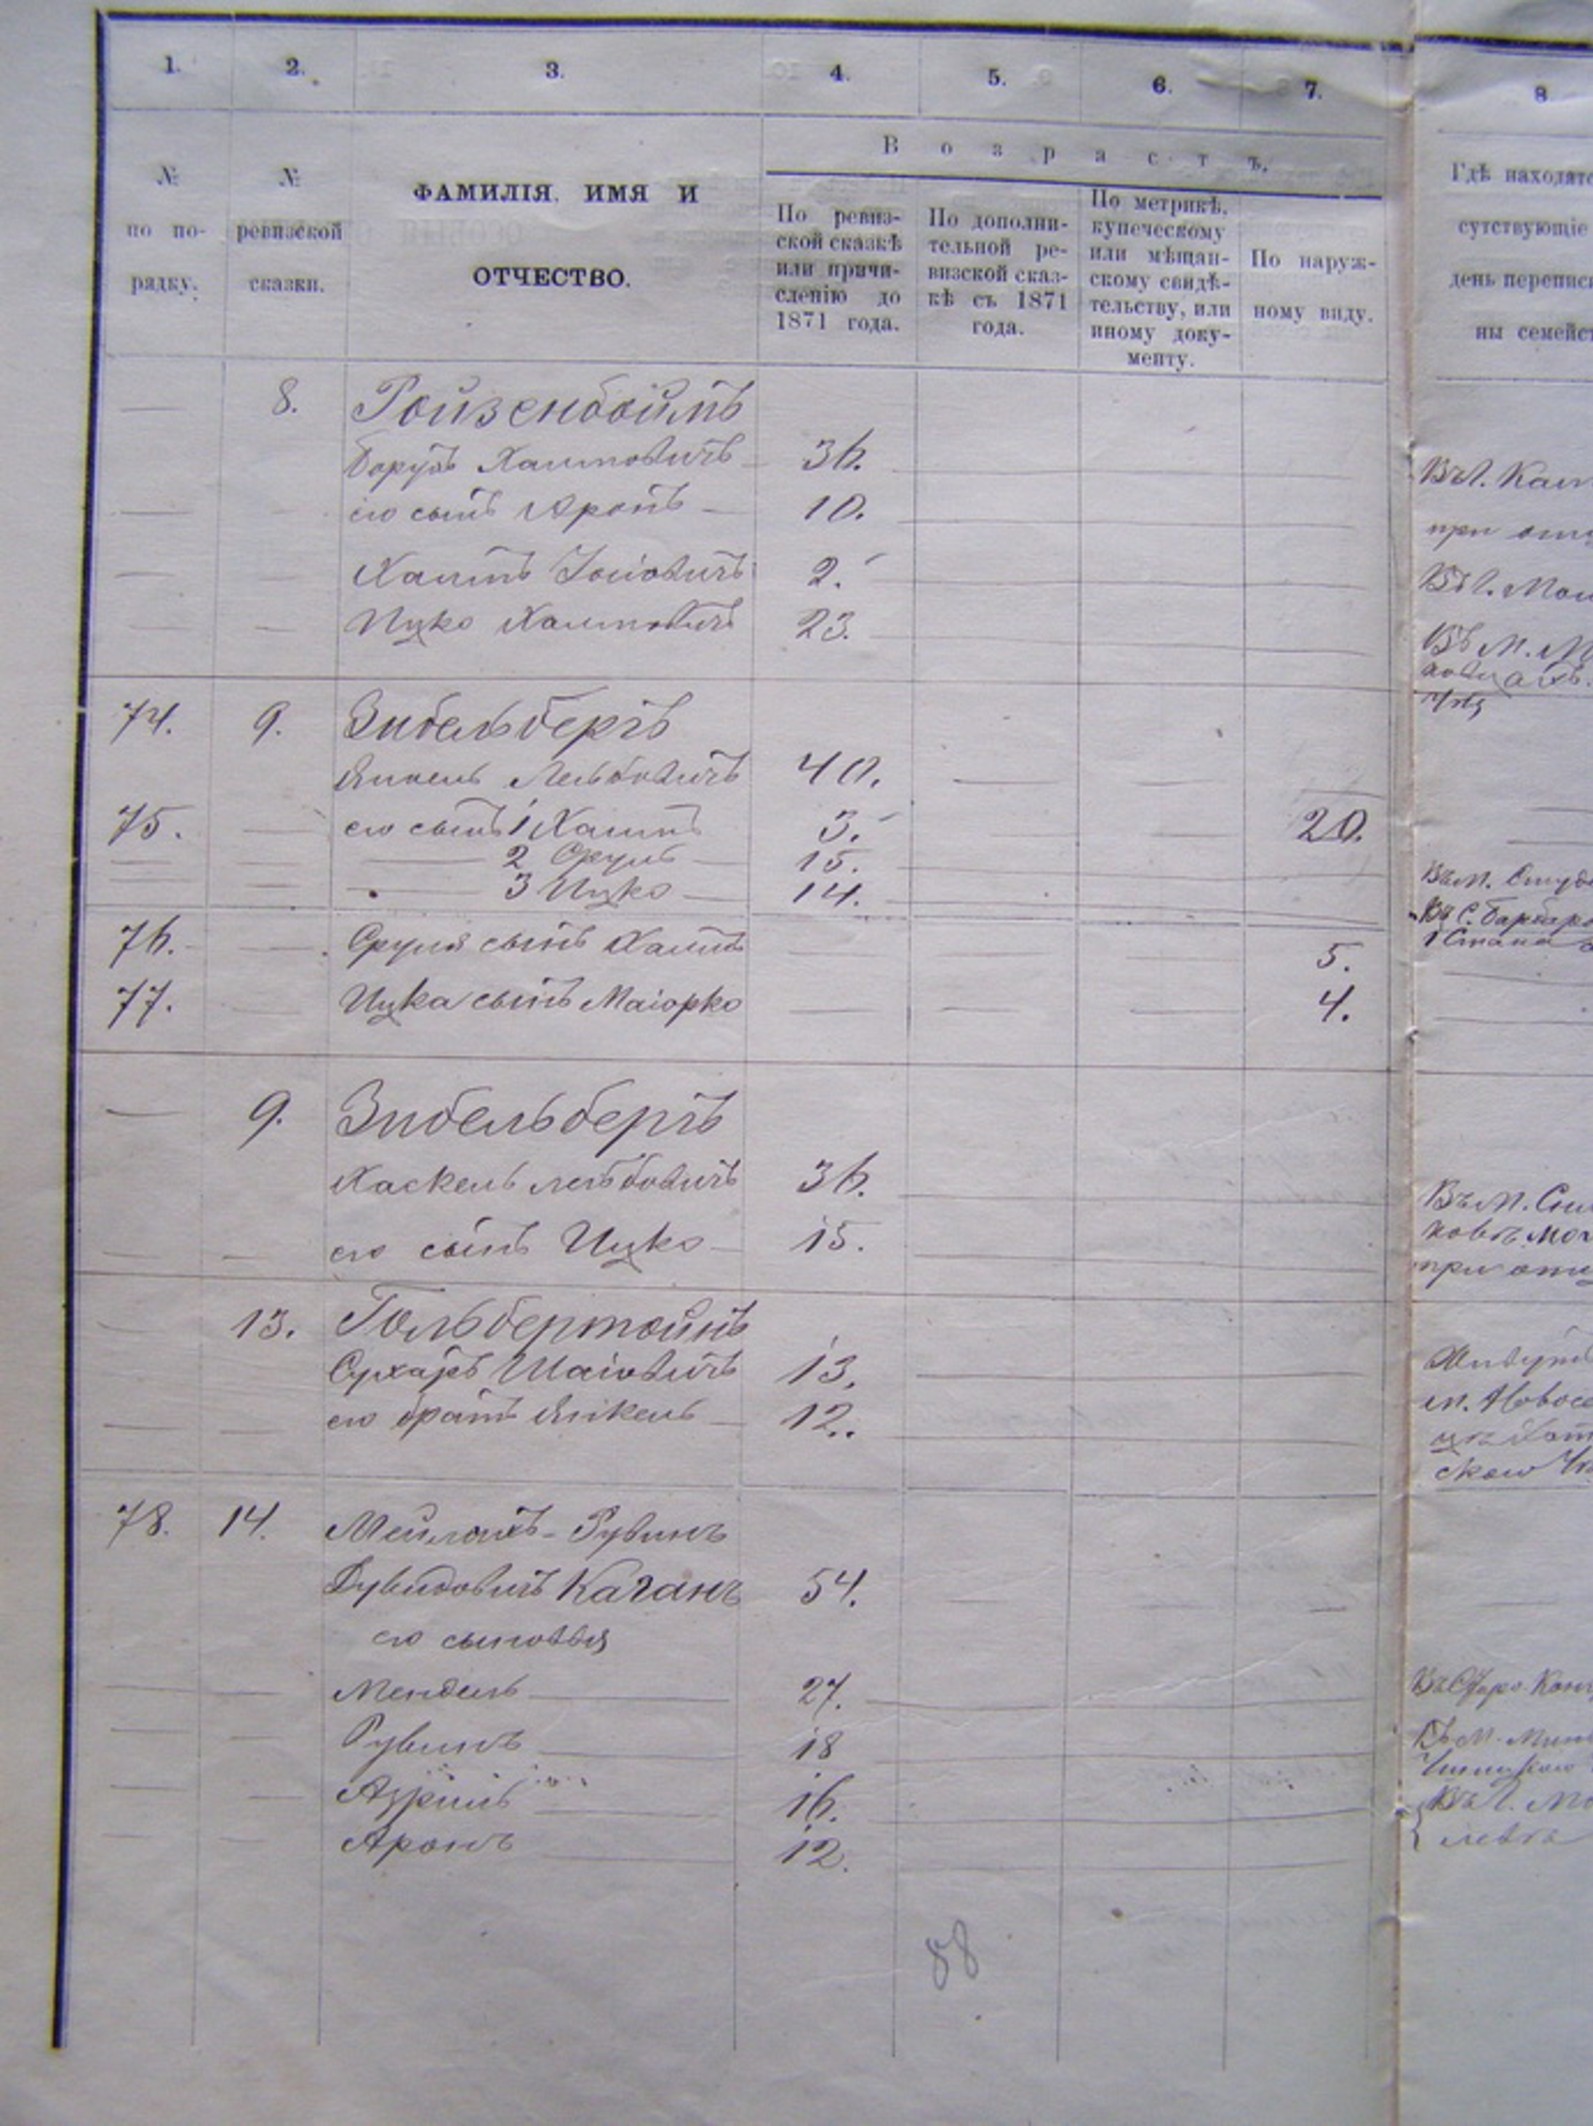 1. 2. 3. 4. 5. 6. 7. 8
Возрастъ.
№ по по-рядку.
№ ревизской сказки.
ФАМИЛІЯ, ИМЯ И
ОТЧЕСТВО.
По ревиз-
ской сказкѣ
или причи-
сленію до
1871 года.
По дополни-
тельной ре-
визской сказ-
кѣ съ 1871
года.
По метрикѣ,
купеческому
или мѣщан-
скому свидѣ-
тельству, или
иному доку-
менту.
По наруж-
ному виду.
Гдѣ находятс
сутствующіе
день переписи
ны семейст
8. Ройзенбоймъ
Борухъ Хаимовичъ 36. Въ Г. Кам
его сынъ Аронъ 10. при отц
Хаимъ Іосіовичъ 2. Въ Г. Мог
Ицко Хаимовичъ 23. Въ М.
74. 9. Зибельбергъ
Янкель Лейбовичъ 40.
75. его сынъ 1 Хаимъ 3. 20.
2 Сруль 15. Въ М. Студе
3 Ицко 14. Въ С. Барбаро
1 Стана
76. Сруля сынъ Хаимъ 5.
77. Ицка сынъ Маіорко 4.
9. Зибельбергъ
Хаскель Лейбовичъ 36. Въ М.
его сынъ Ицко 15. при отц
13. Гольбертойнъ
Сухаръ Шаіовичъ 13.
его братъ Янкель 12. м. Новосе
78. 14. Мейлахъ-Рувинъ
Дувидовичъ Каганъ 54.
его сыновья
Мендель 27.
Рувинъ 18 Въ М.
Азріиль 16. Въ Г. Мо
Аронъ 12. левѣ
88